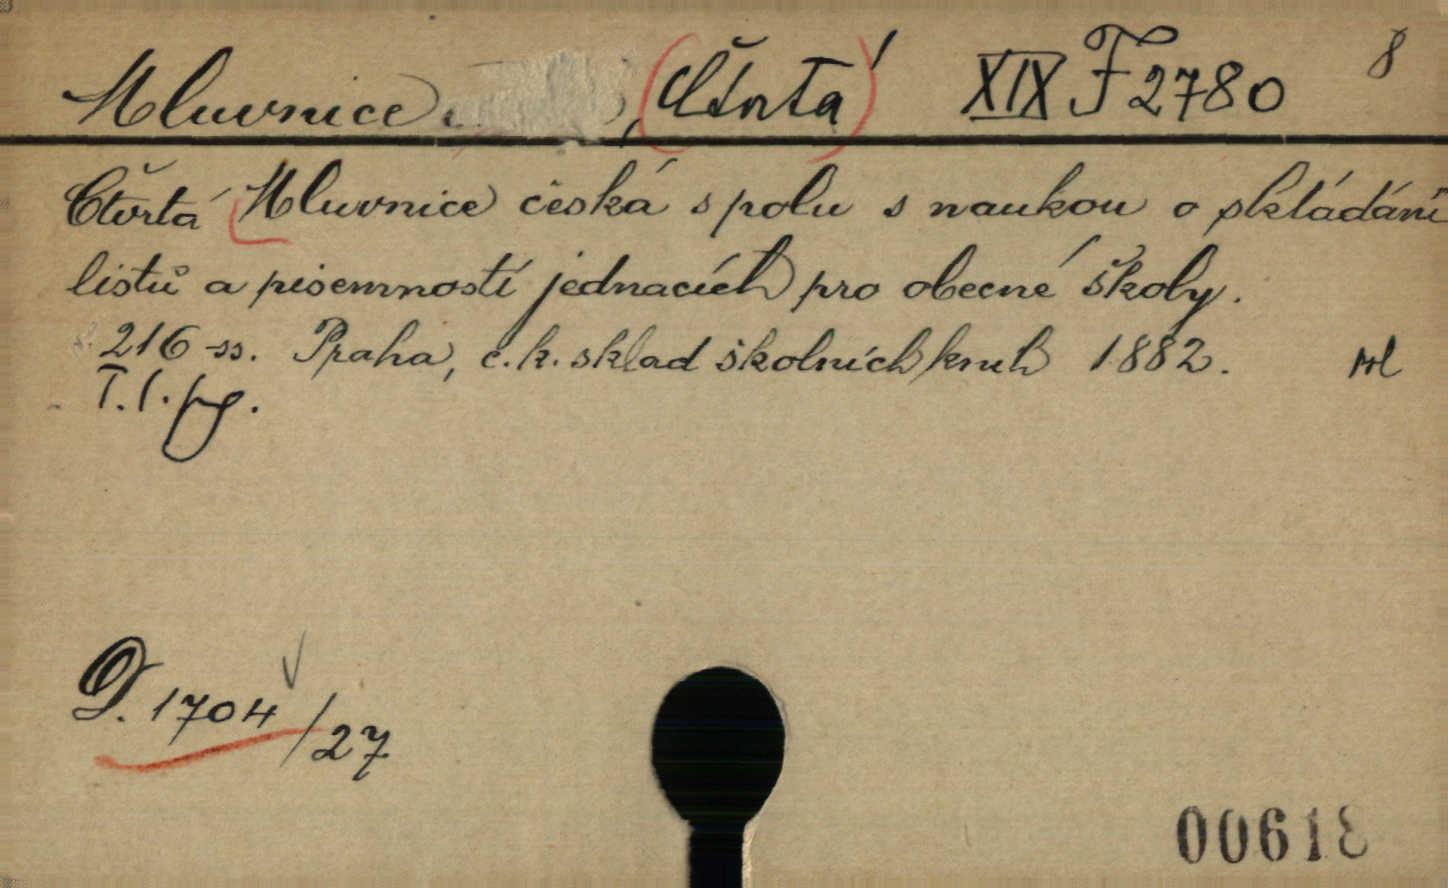 Mluvnice , (Čtvrtá) XIX F 2780 8
Čtvrtá Mluvnice česká spolu s naukou o skládání
listů a písemností jednacích pro obecné školy.
216 ss. Praha, c. k. sklad školních knih 1882.
T. l. pg.
D. 1704/27
00618